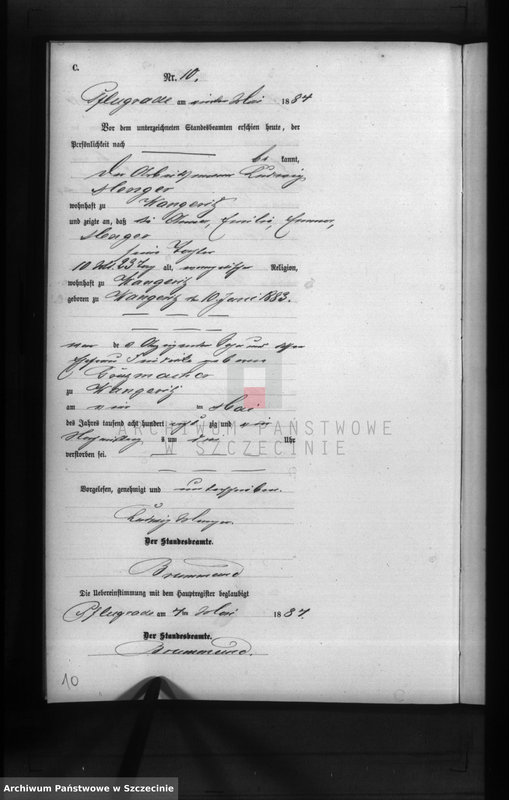 C.
Nr. 10.
Pflugrade am vierten Mai 1884
Vor dem unterzeichneten Standesbeamten erschien heute, der
Persönlichkeit nach
be kannt,
der Arbeitsmann Ludwig
Menger
wohnhaft zu Wangeritz
und zeigte an, daß die Anna, Emilie,
Menger
seine Tochter
10 Mt. 23 Tag alt, evangelischer Religion,
wohnhaft zu Wangeritz
geboren zu Wangeritz den 10 Juni 1883.
de s Anzeigenden
geborene
zu Wangeritz
am Mai
des Jahres tausend acht hundert zig und vier
Nachmittag s um Uhr
verstorben sei.
Vorgelesen, genehmigt und unterschrieben.
Ludwig Menger.
Der Standesbeamte.
Brummund
Die Uebereinstimmung mit dem Hauptregister beglaubigt
Pflugrade am 4ten Mai 1884.
Der Standesbeamte.
Brummund.
10
ARCHIWUM PAŃSTWOWE
W SZCZECINIE
Archiwum Państwowe w Szczecinie